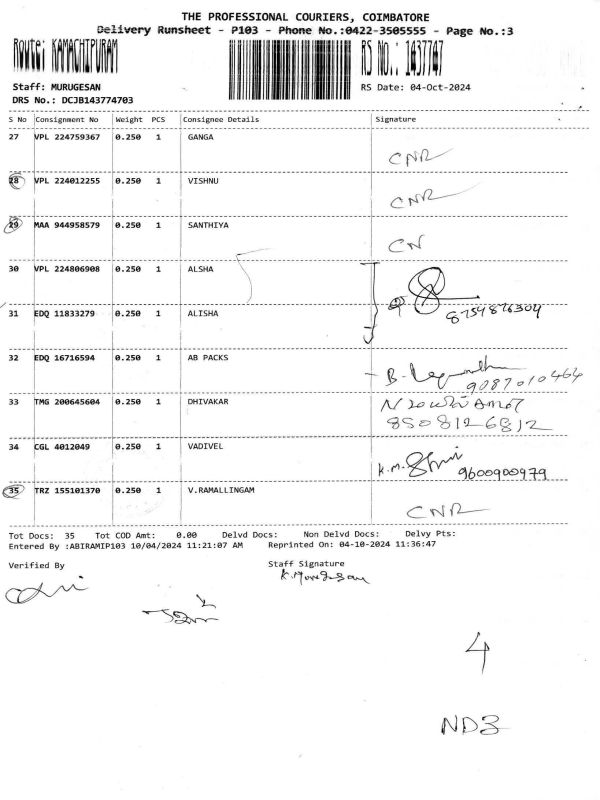 THE PROFESSIONAL COURIERS, COIMBATORE
Delivery Runsheet - P103 - Phone No.:0422-3505555 - Page No.:3
Route: KAMACHIPURAM RS No.: 1437747
Staff: MURUGESAN RS Date: 04-Oct-2024
DRS No.: DCJB143774703
S No Consignment No Weight PCS Consignee Details Signature
27 VPL 224759367 0.250 1 GANGA CNR
28 VPL 224012255 0.250 1 VISHNU CNR
29 MAA 944958579 0.250 1 SANTHIYA CN
30 VPL 224806908 0.250 1 ALSHA
8754876304
31 EDQ 11833279 0.250 1 ALISHA
32 EDQ 16716594 0.250 1 AB PACKS
9087010464
33 TMG 200645604 0.250 1 DHIVAKAR
8508126812
34 CGL 4012049 0.250 1 VADIVEL K.M. 9600900979
35 TRZ 155101370 0.250 1 V.RAMALLINGAM CNR
Tot Docs: 35 Tot COD Amt: 0.00 Delvd Docs: Non Delvd Docs: Delvy Pts:
Entered By :ABIRAMIP103 10/04/2024 11:21:07 AM Reprinted On: 04-10-2024 11:36:47
Verified By Staff Signature
K.Murugesan
4
ND3